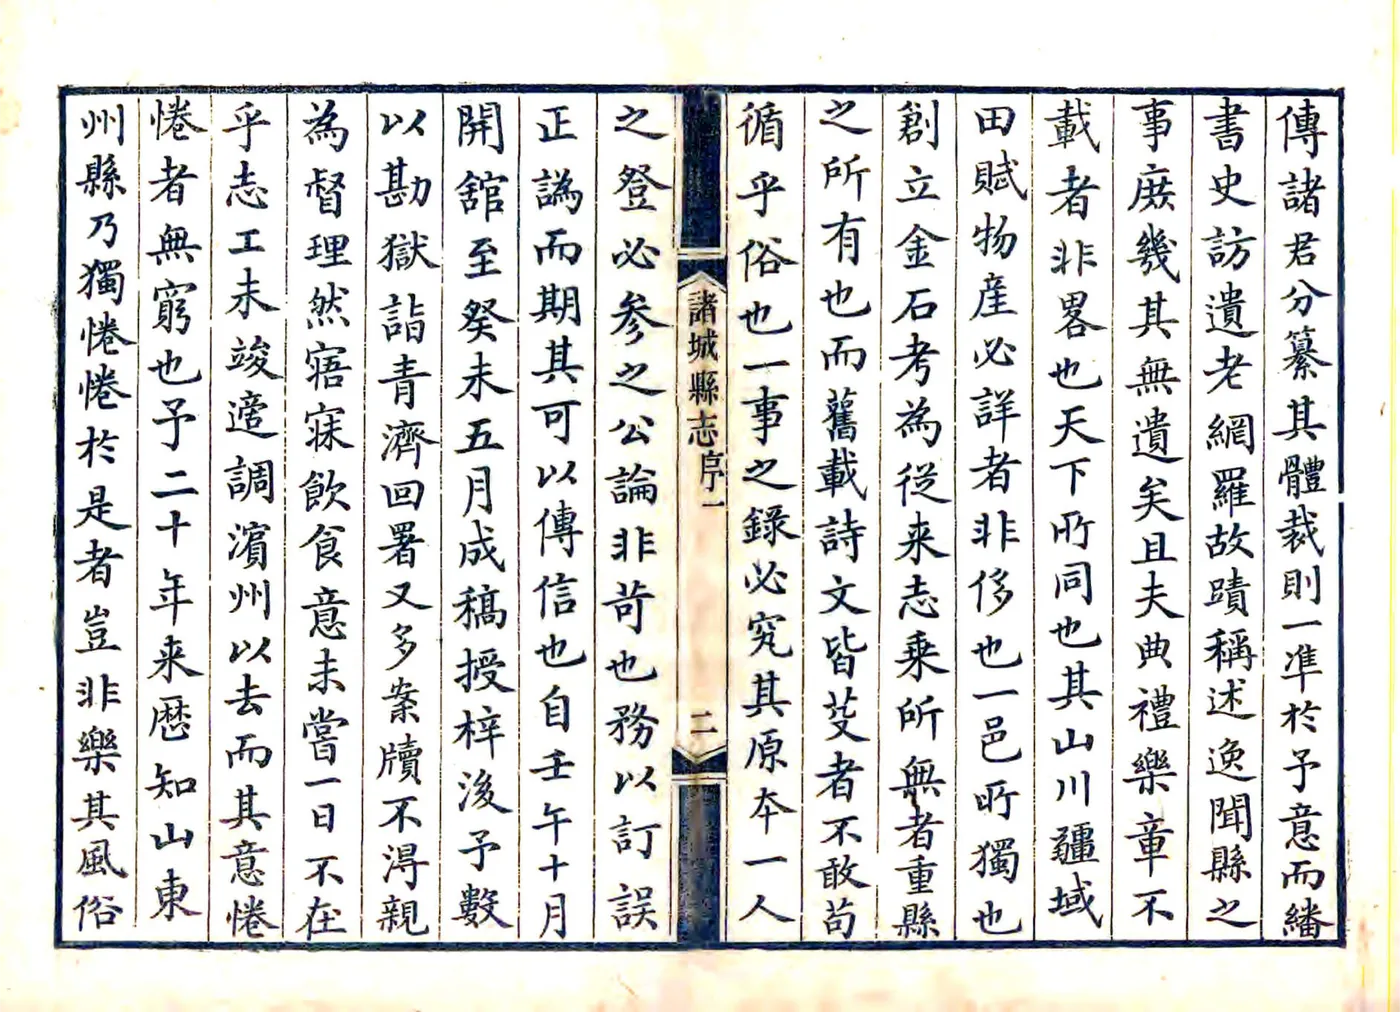 傳諸君分纂其體裁則一準於予意而繙
書史訪遺老網羅故蹟稱述逸聞縣之
事庻幾其無遺矣且夫典禮樂章不
載者非畧也天下所同也其山川疆域
田賦物産必詳者非侈也一邑所獨也
創立金石考為従来志乗所無者重縣
之所有也而舊載詩文皆芟者不敢苟
循乎俗也一事之錄必究其原本一人
諸城縣志序一
二
之登必参之公論非苛也務以訂誤
正譌而期其可以傳信也自壬午十月
開舘至癸未五月成稿授梓後予數
以勘獄詣青濟回署又多案牘不淂親
為督理然寤寐飲食意未嘗一日不在
乎志工未竣適調濵州以去而其意惓
惓者無窮也予二十年来歴知山東
州縣乃獨惓惓於是者豈非樂其風俗